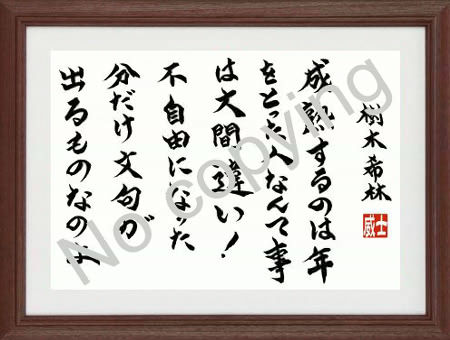 樹木希林
威士
成熟するのは年
をとった人なんて事
は大間違い！
不自由になった
分だけ文句が
出るものなのよ
No copying